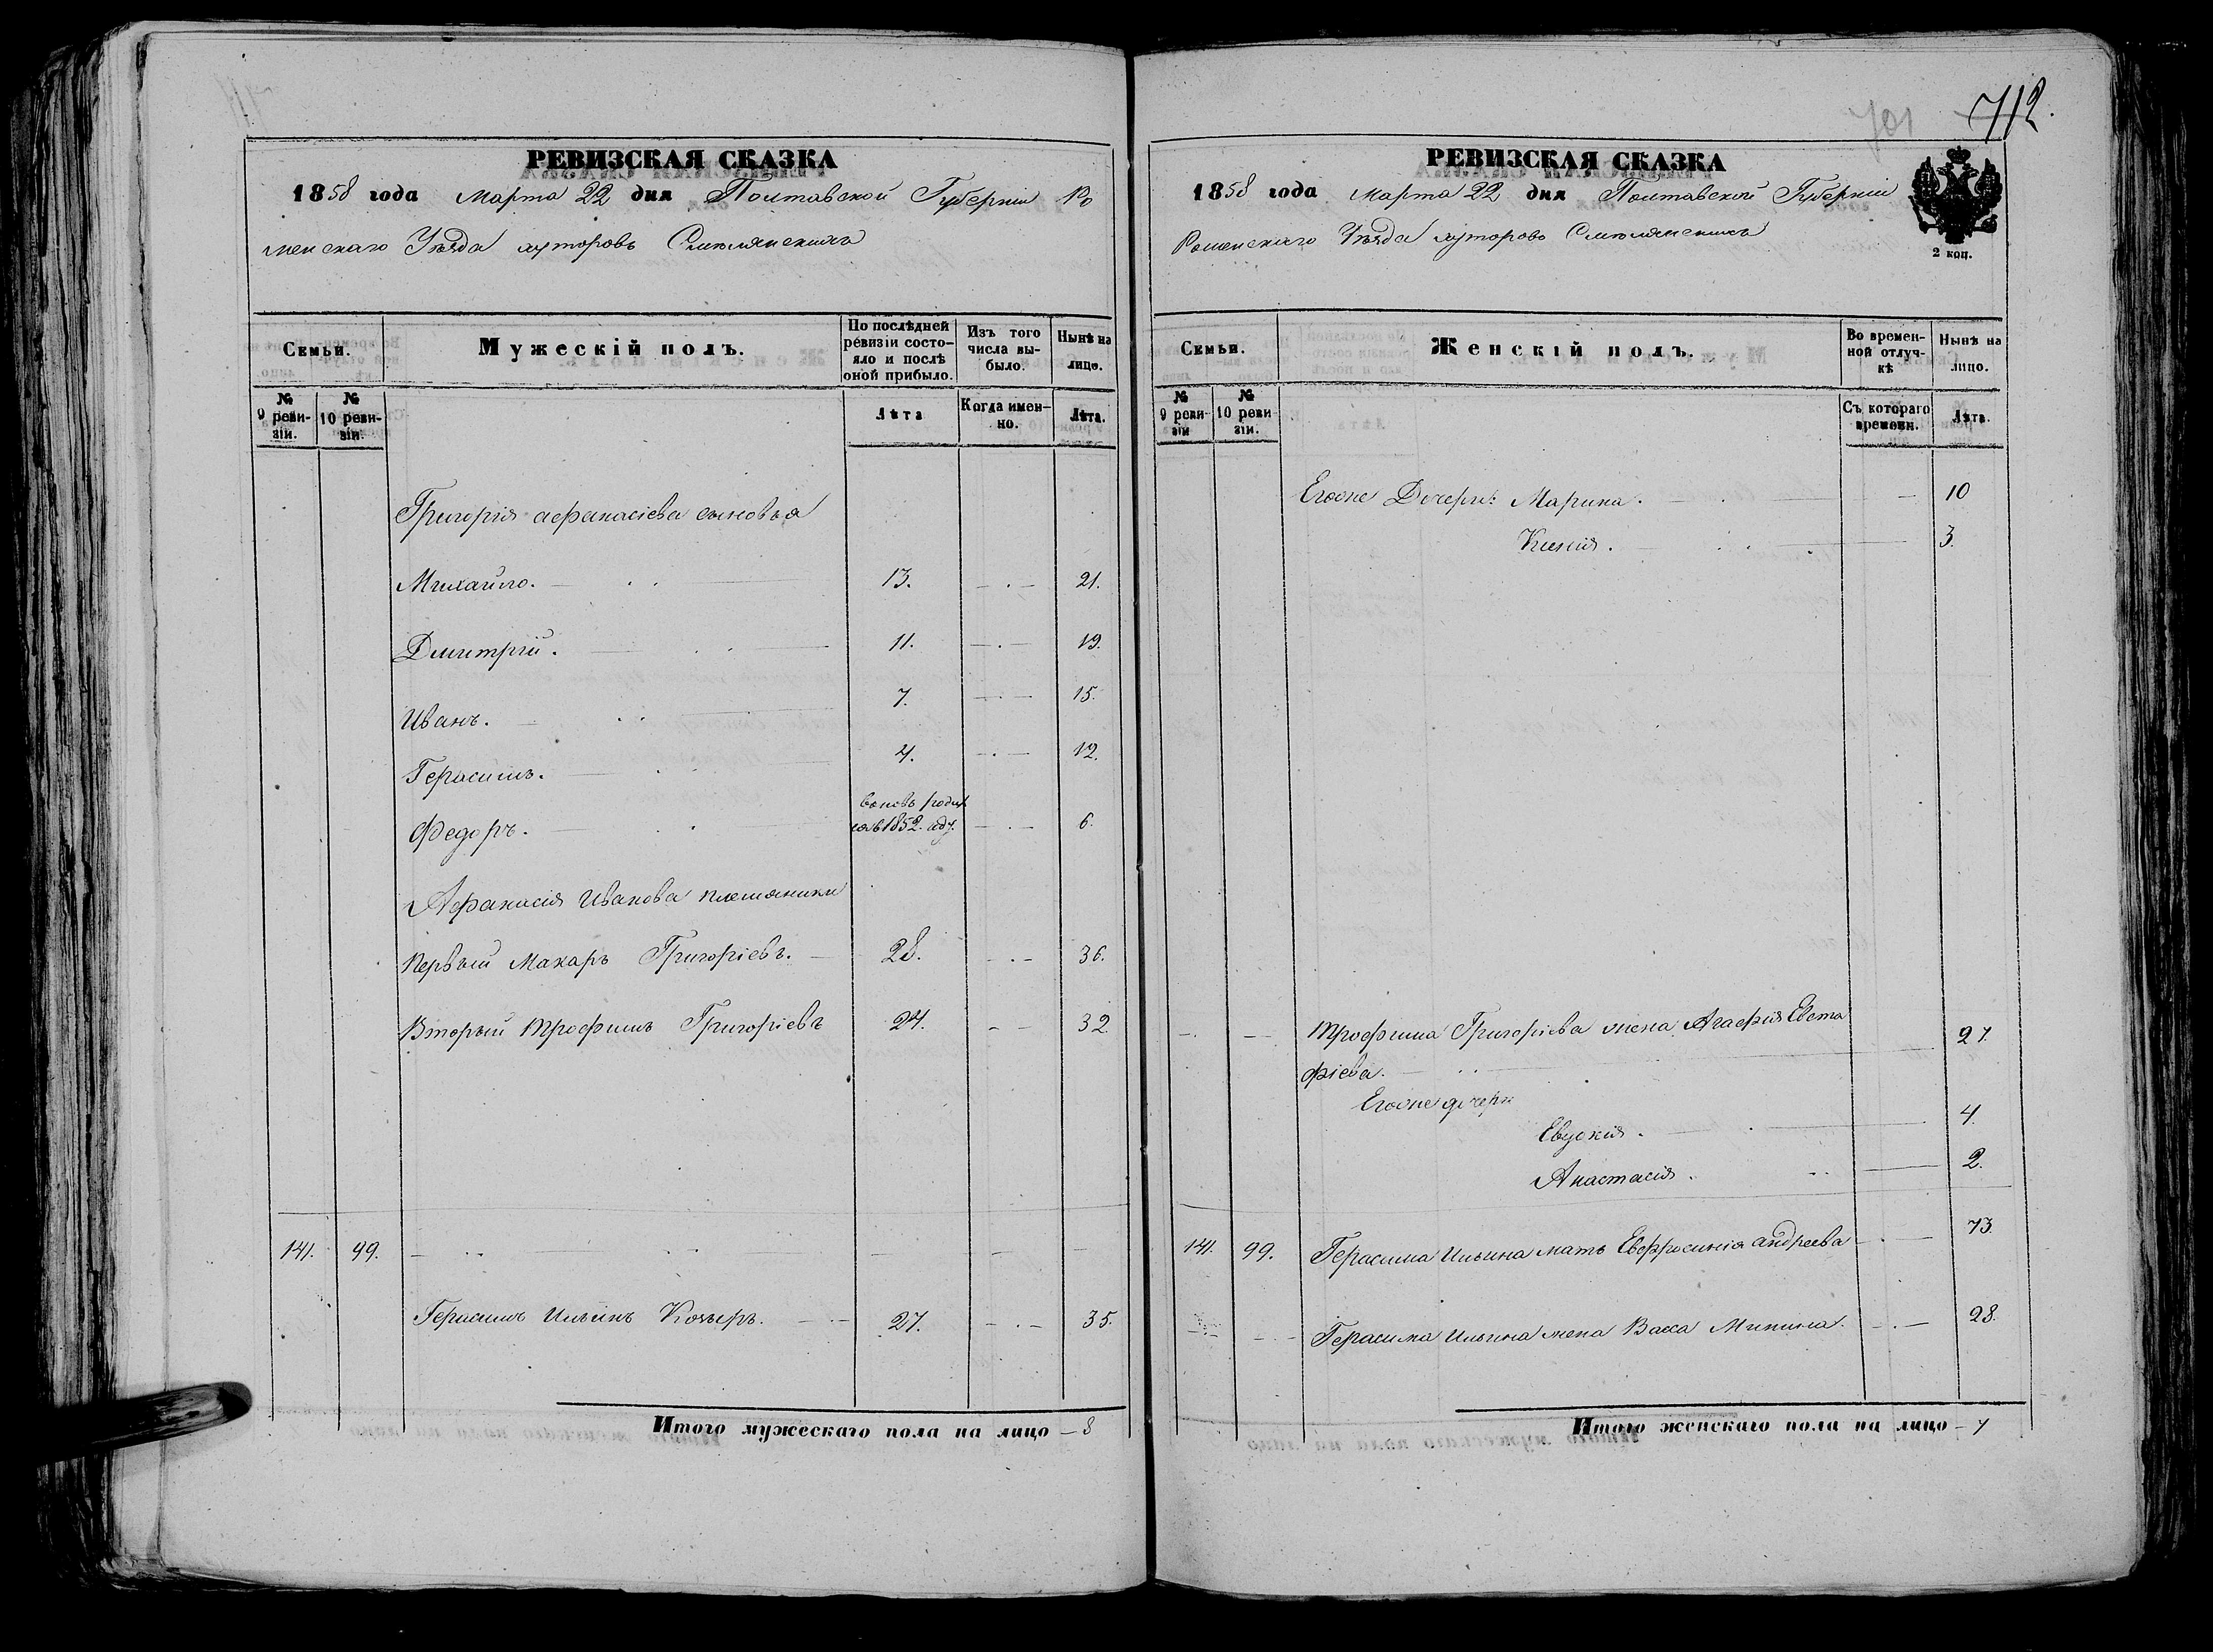 РЕВИЗСКАЯ СКАЗКА
1858 года Марта 22 дня Полтавской Губерніи Ро
менскаго Уѣзда хуторовъ Смѣлянскихъ
Семьи.
Мужескій полъ.
По послѣдней ревизіи состояло и послѣ оной прибыло.
Изъ того числа выбыло.
Нынѣ на лицо.
№ 9 ревизіи.
№ 10 ревизіи.
Лѣта
Когда именно.
Лѣта.
Григорія Афанасіева сыновья
Михайло. 13. 21.
Дмитрій. 11. 19.
Иванъ. 7. 15.
Герасимъ. 4. 12.
Федоръ. вновь родил
ся в 1852. году. 6.
Афанасія Иванова племяники
Первый Макаръ Григоріевъ. 28. 36.
Вторый Трофимъ Григоріевъ 24. 32
141. 99.
Герасимъ Ильинъ Козыръ. 27. 35.
Итого мужескаго пола на лицо 8
701 712.
РЕВИЗСКАЯ СКАЗКА
1858 года Марта 22 дня Полтавской Губерніи
Роменскаго Уѣзда хуторовъ Смѣлянскихъ
2 коп.
Семьи.
Женскій полъ.
Во временной отлучкѣ
Нынѣ на лицо.
№ 9 ревизіи
№ 10 ревизіи.
Съ котораго времени.
Лѣта.
Егоже Дочери: Марина. 10
Ксенія. 3.
Трофима Григоріева жена Агафія Евста
фіева. 27.
Егоже дочери
Евдокія. 4.
Анастасія. 2.
141. 99. Герасима Ильина мать Евфросинія Андреева 73.
Герасима Ильина жена Васса Минина. 28.
Итого женскаго пола на лицо 7